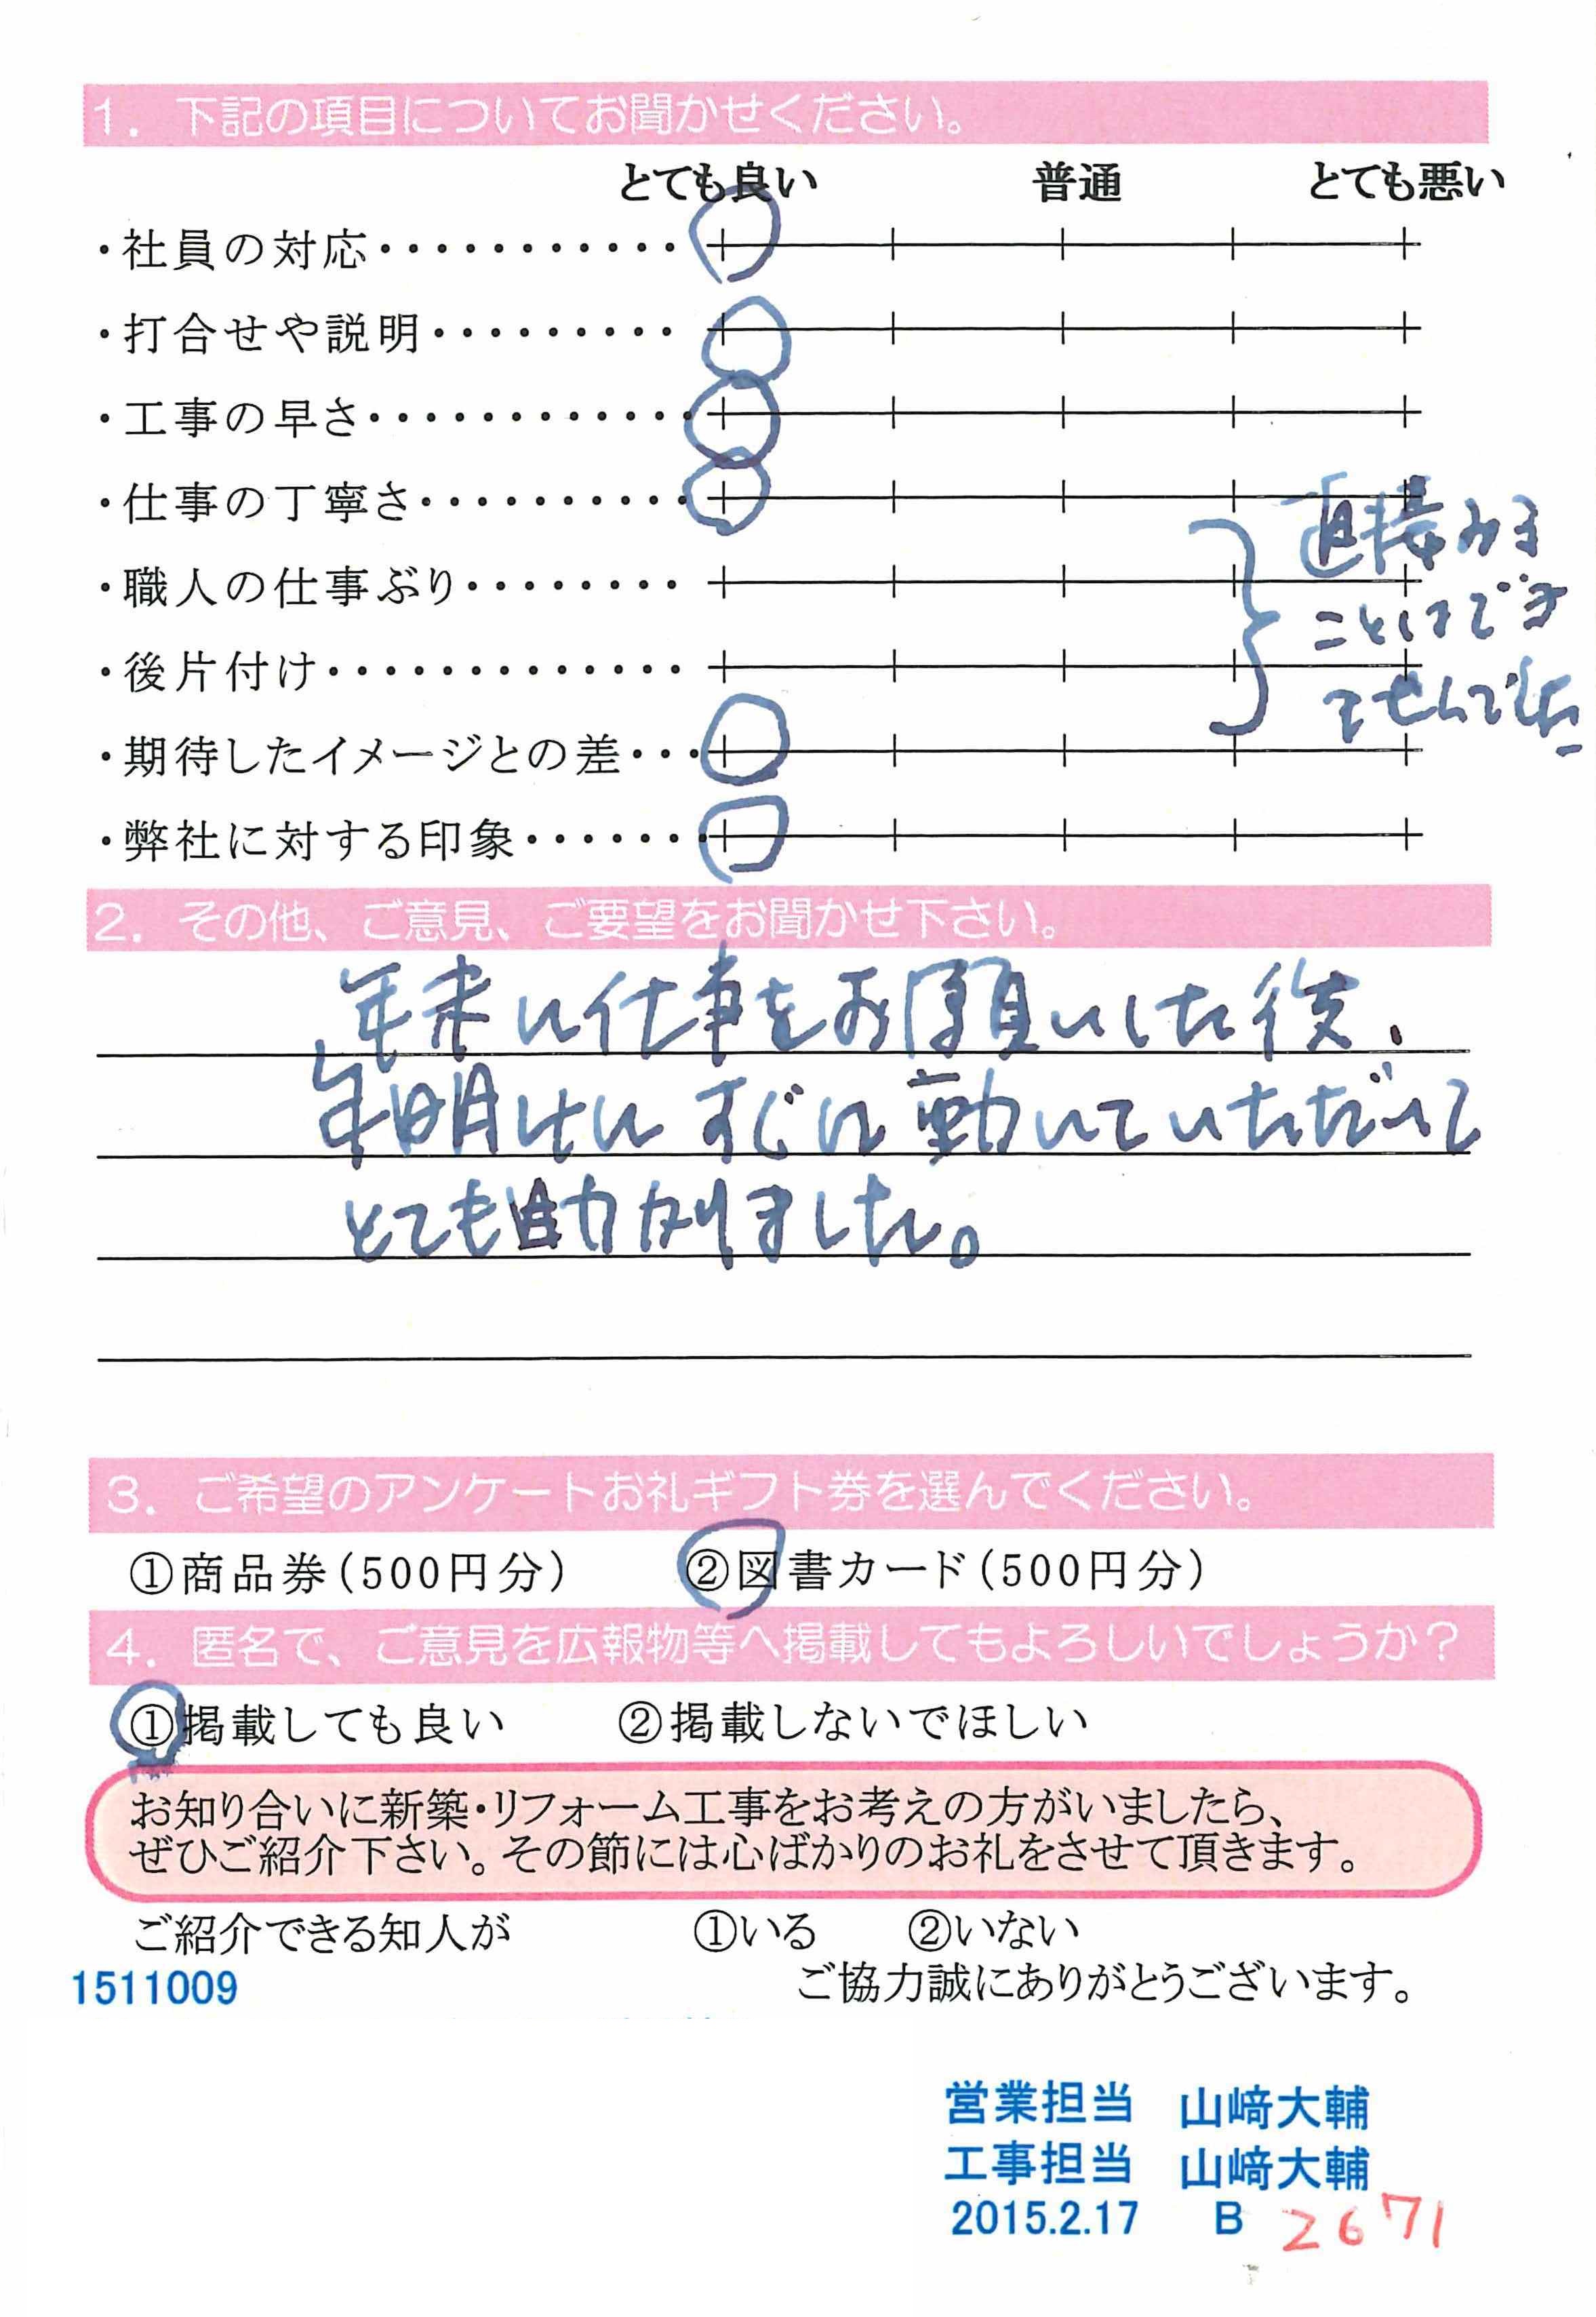 1. 下記の項目についてお聞かせください。
とても良い 普通 とても悪い
・社員の対応・・・・・・・・・・・
・打合せや説明・・・・・・・・・
・工事の早さ・・・・・・・・・・・・
・仕事の丁寧さ・・・・・・・・・・
・職人の仕事ぶり・・・・・・・・
・後片付け・・・・・・・・・・・・・
直接みる
ことはでき
ませんでした
・期待したイメージとの差・・・
・弊社に対する印象・・・・・・・
2. その他、ご意見、ご要望をお聞かせ下さい。
年末に仕事をお願いした後、
年明けにすぐに動いていただいて
とても助かりました。
3. ご希望のアンケートお礼ギフト券を選んでください。
①商品券(500円分) ②図書カード(500円分)
4. 匿名で、ご意見を広報物等へ掲載してもよろしいでしょうか?
①掲載しても良い ②掲載しないでほしい
お知り合いに新築・リフォーム工事をお考えの方がいましたら、
ぜひご紹介下さい。その節には心ばかりのお礼をさせて頂きます。
ご紹介できる知人が ①いる ②いない
1511009 ご協力誠にありがとうございます。
営業担当 山﨑大輔
工事担当 山﨑大輔
2015.2.17 B 2671